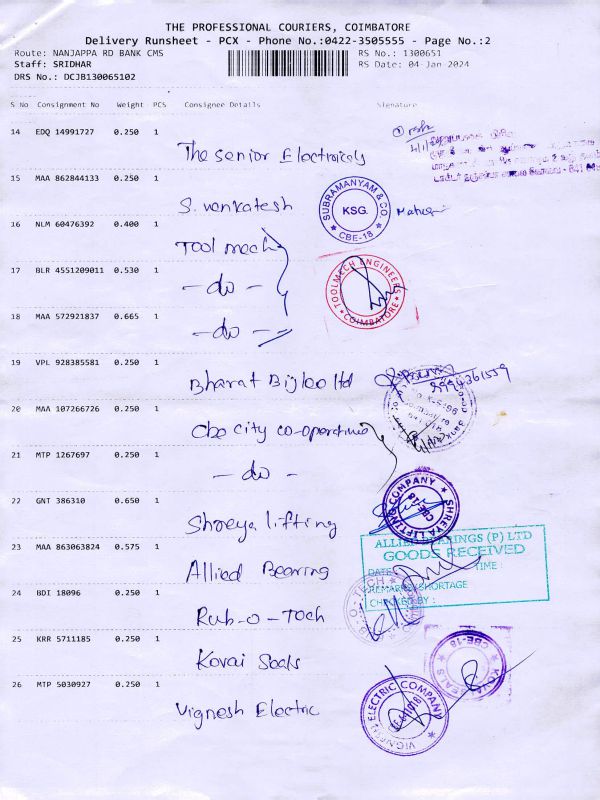 THE PROFESSIONAL COURIERS, COIMBATORE
Delivery Runsheet - PCX - Phone No.:0422-3505555 - Page No.:2
Route: NANJAPPA RD BANK CMS
RS No.: 1300651
Staff: SRIDHAR
RS Date: 04-Jan-2024
DRS No.: DCJB130065102
S No Consignment No Weight PCS Consignee Details Signature
14 EDQ 14991727 0.250 1
The Senior Electricals
15 MAA 862844133 0.250 1
S. venkatesh
SUBRAMANYAM & CO.
KSG.
CBE-18
16 NLM 60476392 0.400 1
Tool mech
17 BLR 4551209011 0.530 1
- do -
TOOLMECH ENGINEERS
COIMBATORE
18 MAA 572921837 0.665 1
- do -
19 VPL 928385581 0.250 1
Bharat Bijlee ltd
20 MAA 107266726 0.250 1
Cbe city co-operative
21 MTP 1267697 0.250 1
- do -
22 GNT 386310 0.650 1
Shreya lifting
SHREYA LIFTING COMPANY
CBE-18
23 MAA 863063824 0.575 1
Allied Bearing
ALLIED BEARINGS (P) LTD
GOODS RECEIVED
DATE
TIME :
REMARKS/SHORTAGE
CHECKED BY :
24 BDI 18096 0.250 1
Rub-o-Tech
25 KRR 5711185 0.250 1
Kovai Seals
KOVAI SEALS
CBE-18
26 MTP 5030927 0.250 1
Vignesh Electric
VIGNESH ELECTRIC COMPANY